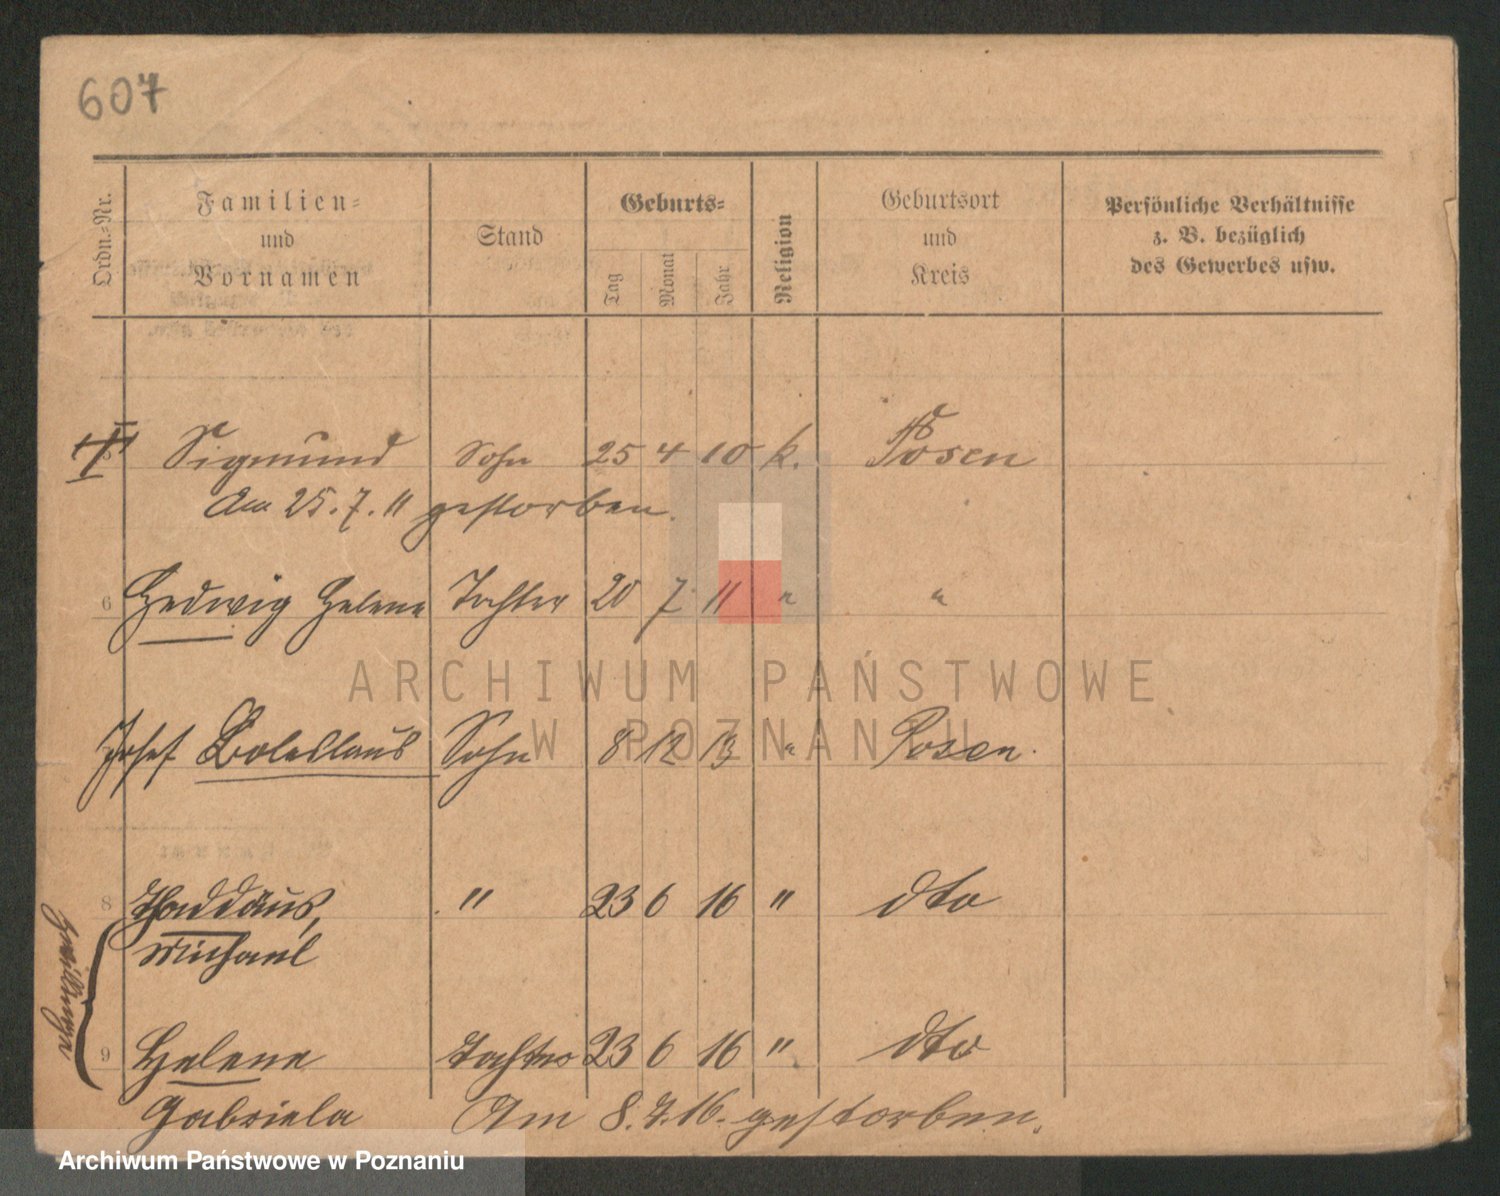 607
Ordn.-Nr.
Familien-
und
Vornamen
Stand
Geburts-
Tag
Monat
Jahr
Religion
Geburtsort
und
Kreis
Persönliche Verhältnisse
z. B. bezüglich
des Gewerbes usw.
5 Sigmund Sohn 25 4 10 k. Posen
Am 25. 7. 11 gestorben.
6 Hedwig Helene Tochter 20 7 11 " "
7 Josef Boleslaus Sohn 8 12 13 " Posen.
8 Thaddäus, " 23 6 16 " dto
Michael
Zwillinge
9 Helene Tochter 23 6 16 " dto
Gabriela Am 8. 7. 16. gestorben.
ARCHIWUM PAŃSTWOWE
W POZNANIU
Archiwum Państwowe w Poznaniu